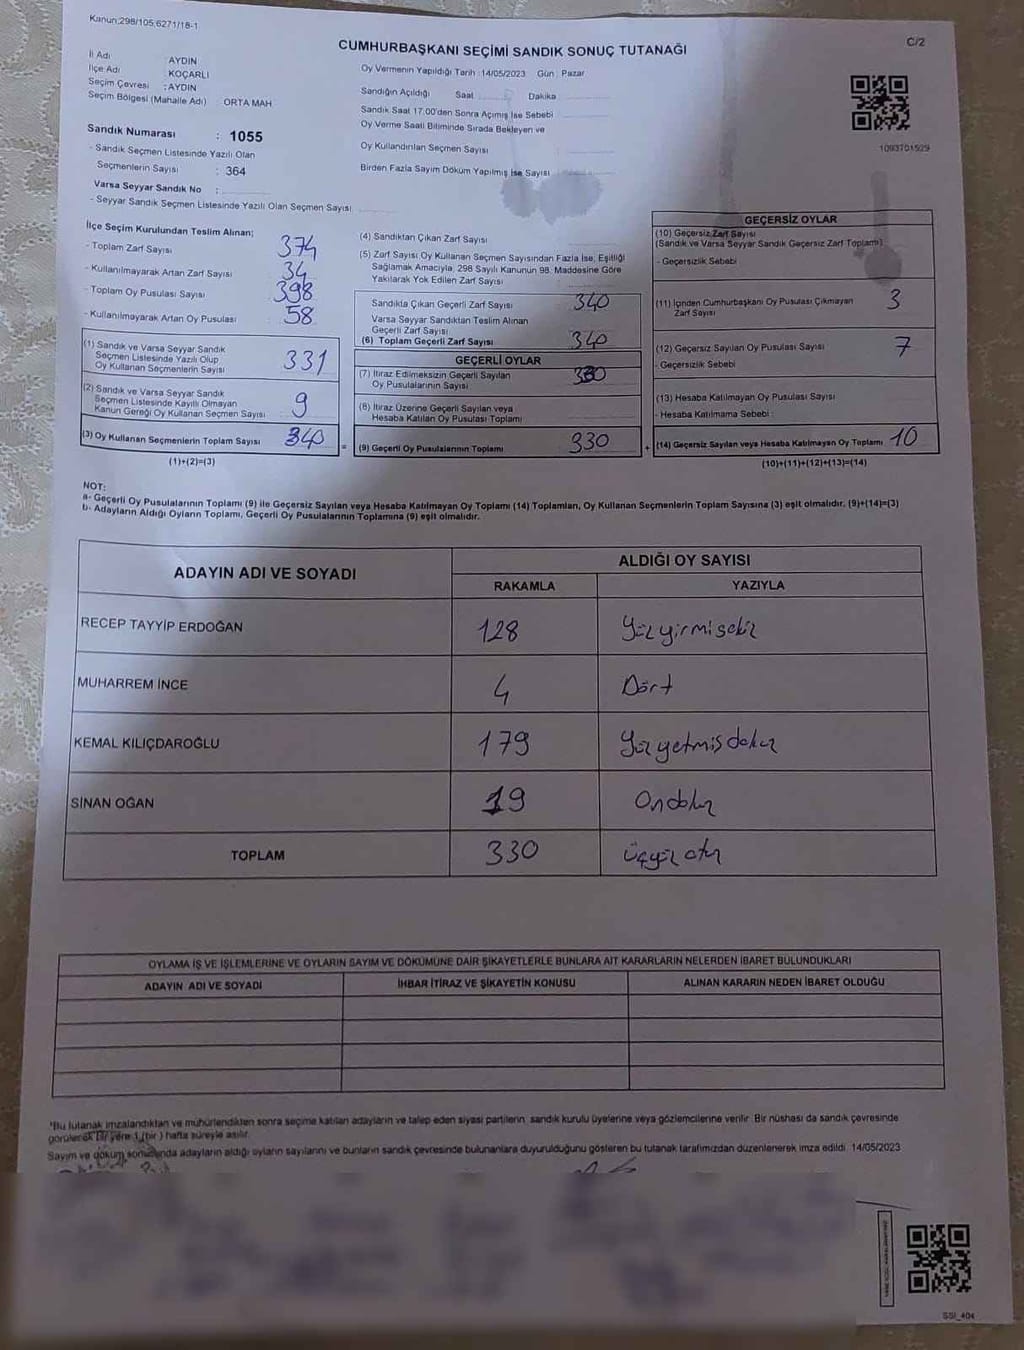 Kanun;298/105,6271/18-1
C/2
CUMHURBAŞKANI SEÇİMİ SANDIK SONUÇ TUTANAĞI
İl Adı : AYDIN
İlçe Adı : KOÇARLI
Seçim Çevresi : AYDIN
Seçim Bölgesi (Mahalle Adı) ORTA MAH
Sandık Numarası : 1055
- Sandık Seçmen Listesinde Yazılı Olan
Seçmenlerin Sayısı : 364
Varsa Seyyar Sandık No :
- Seyyar Sandık Seçmen Listesinde Yazılı Olan Seçmen Sayısı
Oy Vermenin Yapıldığı Tarih : 14/05/2023 Gün : Pazar
Sandığın Açıldığı Saat Dakika
Sandık Saat 17:00'den Sonra Açımış İse Sebebi
Oy Verme Saati Bitiminde Sırada Bekleyen ve
Oy Kullandırılan Seçmen Sayısı
Birden Fazla Sayım Döküm Yapılmış İse Sayısı
1093701929
İlçe Seçim Kurulundan Teslim Alınan;
- Toplam Zarf Sayısı 374
- Kullanılmayarak Artan Zarf Sayısı 34
- Toplam Oy Pusulası Sayısı 398
- Kullanılmayarak Artan Oy Pusulası 58
(1) Sandık ve Varsa Seyyar Sandık
Seçmen Listesinde Yazılı Olup
Oy Kullanan Seçmenlerin Sayısı 331
(2) Sandık ve Varsa Seyyar Sandık
Seçmen Listesinde Kayıtlı Olmayan
Kanun Gereği Oy Kullanan Seçmen Sayısı 9
(3) Oy Kullanan Seçmenlerin Toplam Sayısı 340
(1)+(2)=(3)
(4) Sandıktan Çıkan Zarf Sayısı
(5) Zarf Sayısı Oy Kullanan Seçmen Sayısından Fazla İse, Eşitliği
Sağlamak Amacıyla, 298 Sayılı Kanunun 98. Maddesine Göre
Yakılarak Yok Edilen Zarf Sayısı
Sandıkta Çıkan Geçerli Zarf Sayısı 340
Varsa Seyyar Sandıktan Teslim Alınan
Geçerli Zarf Sayısı
(6) Toplam Geçerli Zarf Sayısı 340
GEÇERLİ OYLAR
(7) İtiraz Edilmeksizin Geçerli Sayılan
Oy Pusulalarının Sayısı 330
(8) İtiraz Üzerine Geçerli Sayılan veya
Hesaba Katılan Oy Pusulası Toplamı
= (9) Geçerli Oy Pusulalarının Toplamı 330
GEÇERSİZ OYLAR
(10) Geçersiz Zarf Sayısı
(Sandık ve Varsa Seyyar Sandık Geçersiz Zarf Toplamı)
- Geçersizlik Sebebi
(11) İçinden Cumhurbaşkanı Oy Pusulası Çıkmayan
Zarf Sayısı 3
(12) Geçersiz Sayılan Oy Pusulası Sayısı 7
- Geçersizlik Sebebi
(13) Hesaba Katılmayan Oy Pusulası Sayısı
- Hesaba Katılmama Sebebi :
+ (14) Geçersiz Sayılan veya Hesaba Katılmayan Oy Toplamı 10
(10)+(11)+(12)+(13)=(14)
NOT:
a- Geçerli Oy Pusulalarının Toplamı (9) ile Geçersiz Sayılan veya Hesaba Katılmayan Oy Toplamı (14) Toplamları, Oy Kullanan Seçmenlerin Toplam Sayısına (3) eşit olmalıdır. (9)+(14)=(3)
b- Adayların Aldığı Oyların Toplamı, Geçerli Oy Pusulalarının Toplamına (9) eşit olmalıdır.
ADAYIN ADI VE SOYADI
ALDIĞI OY SAYISI
RAKAMLA YAZIYLA
RECEP TAYYİP ERDOĞAN 128 Yüzyirmisekiz
MUHARREM İNCE 4 Dört
KEMAL KILIÇDAROĞLU 179 Yüzyetmişdokuz
SİNAN OĞAN 19 Ondokuz
TOPLAM 330 üçyüz otuz
OYLAMA İŞ VE İŞLEMLERİNE VE OYLARIN SAYIM VE DÖKÜMÜNE DAİR ŞİKAYETLERLE BUNLARA AİT KARARLARIN NELERDEN İBARET BULUNDUKLARI
ADAYIN ADI VE SOYADI İHBAR İTİRAZ VE ŞİKAYETİN KONUSU ALINAN KARARIN NEDEN İBARET OLDUĞU
*Bu tutanak imzalandıktan ve mühürlendikten sonra seçime katılan adayların ve talep eden siyasi partilerin sandık kurulu üyelerine veya gözlemcilerine verilir. Bir nüshası da sandık çevresinde
görülecek bir yere 1 (bir) hafta süreyle asılır.
Sayım ve döküm sonucunda adayların aldığı oyların sayılarını ve bunların sandık çevresinde bulunanlara duyurulduğunu gösteren bu tutanak tarafımızdan düzenlenerek imza edildi. 14/05/2023
SSI_404